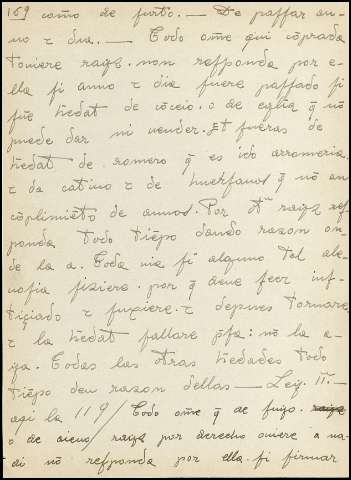 169 como de furto. — De passar an-
no τ dia. — Todo ome qui cõprada
toviere raiz. non responda por e-
lla si anno τ dia fuere passado si
fuẽ hedat de cõceio. o de eglĩa q̃ nõ
puede dar ni vender. Et fueras de
hedat de romero q̃ es ido arromeria.
τ de cativo τ de huerfanos q̃ nõ an
cõplimiẽto de annos. Por raiz res-
ponda todo tiẽpo dando razon on-
de la a. Toda via si alguno tal ale-
vosia fiziere. por q̃ deve seer ius-
tiçiado τ fuxiere. τ depues tornare
τ la hedat fallare p̃sa: nõ la a-
ya. Todas las otras hedades todo
tiẽpo den razon dellas — Ley II.—
aqi la 119/ Todo ome q̃ de fuzo.
o de aieno raiz por derecho oviere a na-
di nõ responda por ella. si firmar